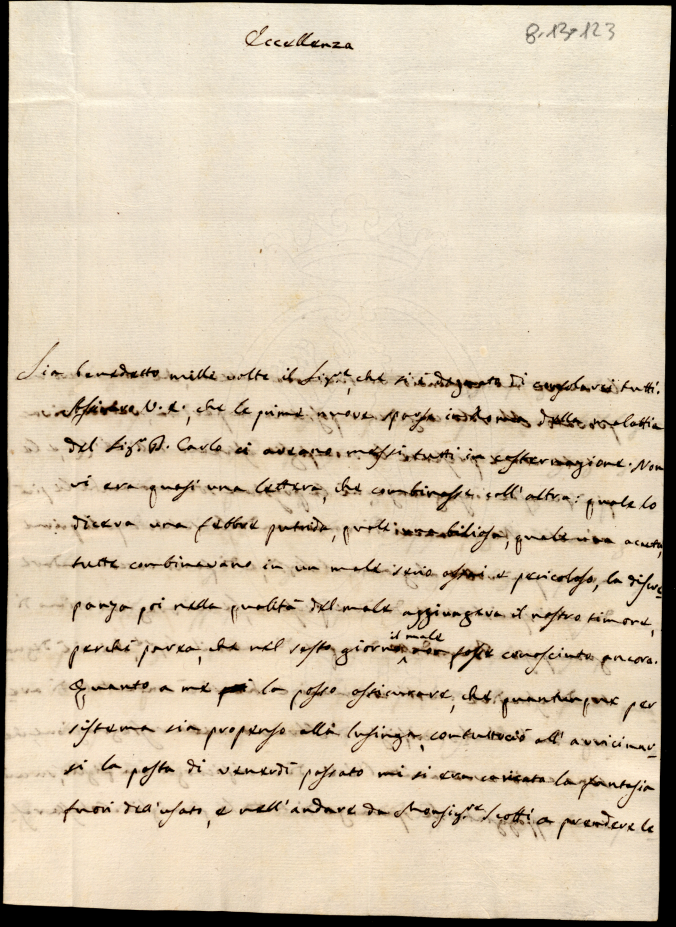 Eccellenza
8.13.123
Sia benedetto mille volte il Sig.re, che si è degnato di consolarci tutti.
Assicuro V. E., che le prime nuove sparse in Roma della malattia
del Sig.r D. Carlo ci aveano messi tutti in costernazione. Non
vi era quasi una lettera, che combinasse coll'altra: quale lo
diceva una febbre putrida, quale una biliosa, quale una acuta,
tutte combinavano in un male serio assai e pericoloso, la discre-
panza poi nella qualità del male aggiungeva il nostro timore,
perché parea, che nel sesto giorno il male non fosse conosciuto ancora.
Quanto a me poi la posso assicurare, che quantunque per
sistema sia propenso alla lusinga, contuttociò all'avvicinar-
si la posta di venerdì passato mi si era caricata la fantasia
fuori dell'usato, e nell'andare da Monsig.re Scotti a prendere le